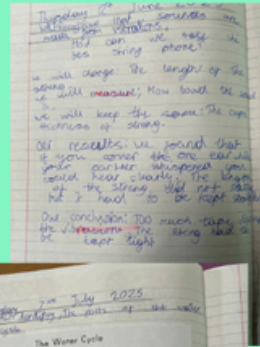 Thursday 12th June 2025
that sources are
made from vibrations.
How can we make the
bes string phone?
we will change: The length of the
string.
we will measure: How loud the sound
is.
we will keep the same: The cups
thickness of string.
Our results: we found that
if you cover the one ear while
your partner whispered you
could hear clearly. The length
of the string did not matter
but it had to be kept
Our conclusion: Too much tape
the vibrations. The string had to
be kept tight
2nd July 2025
The parts of the water
cycle.
The Water Cycle